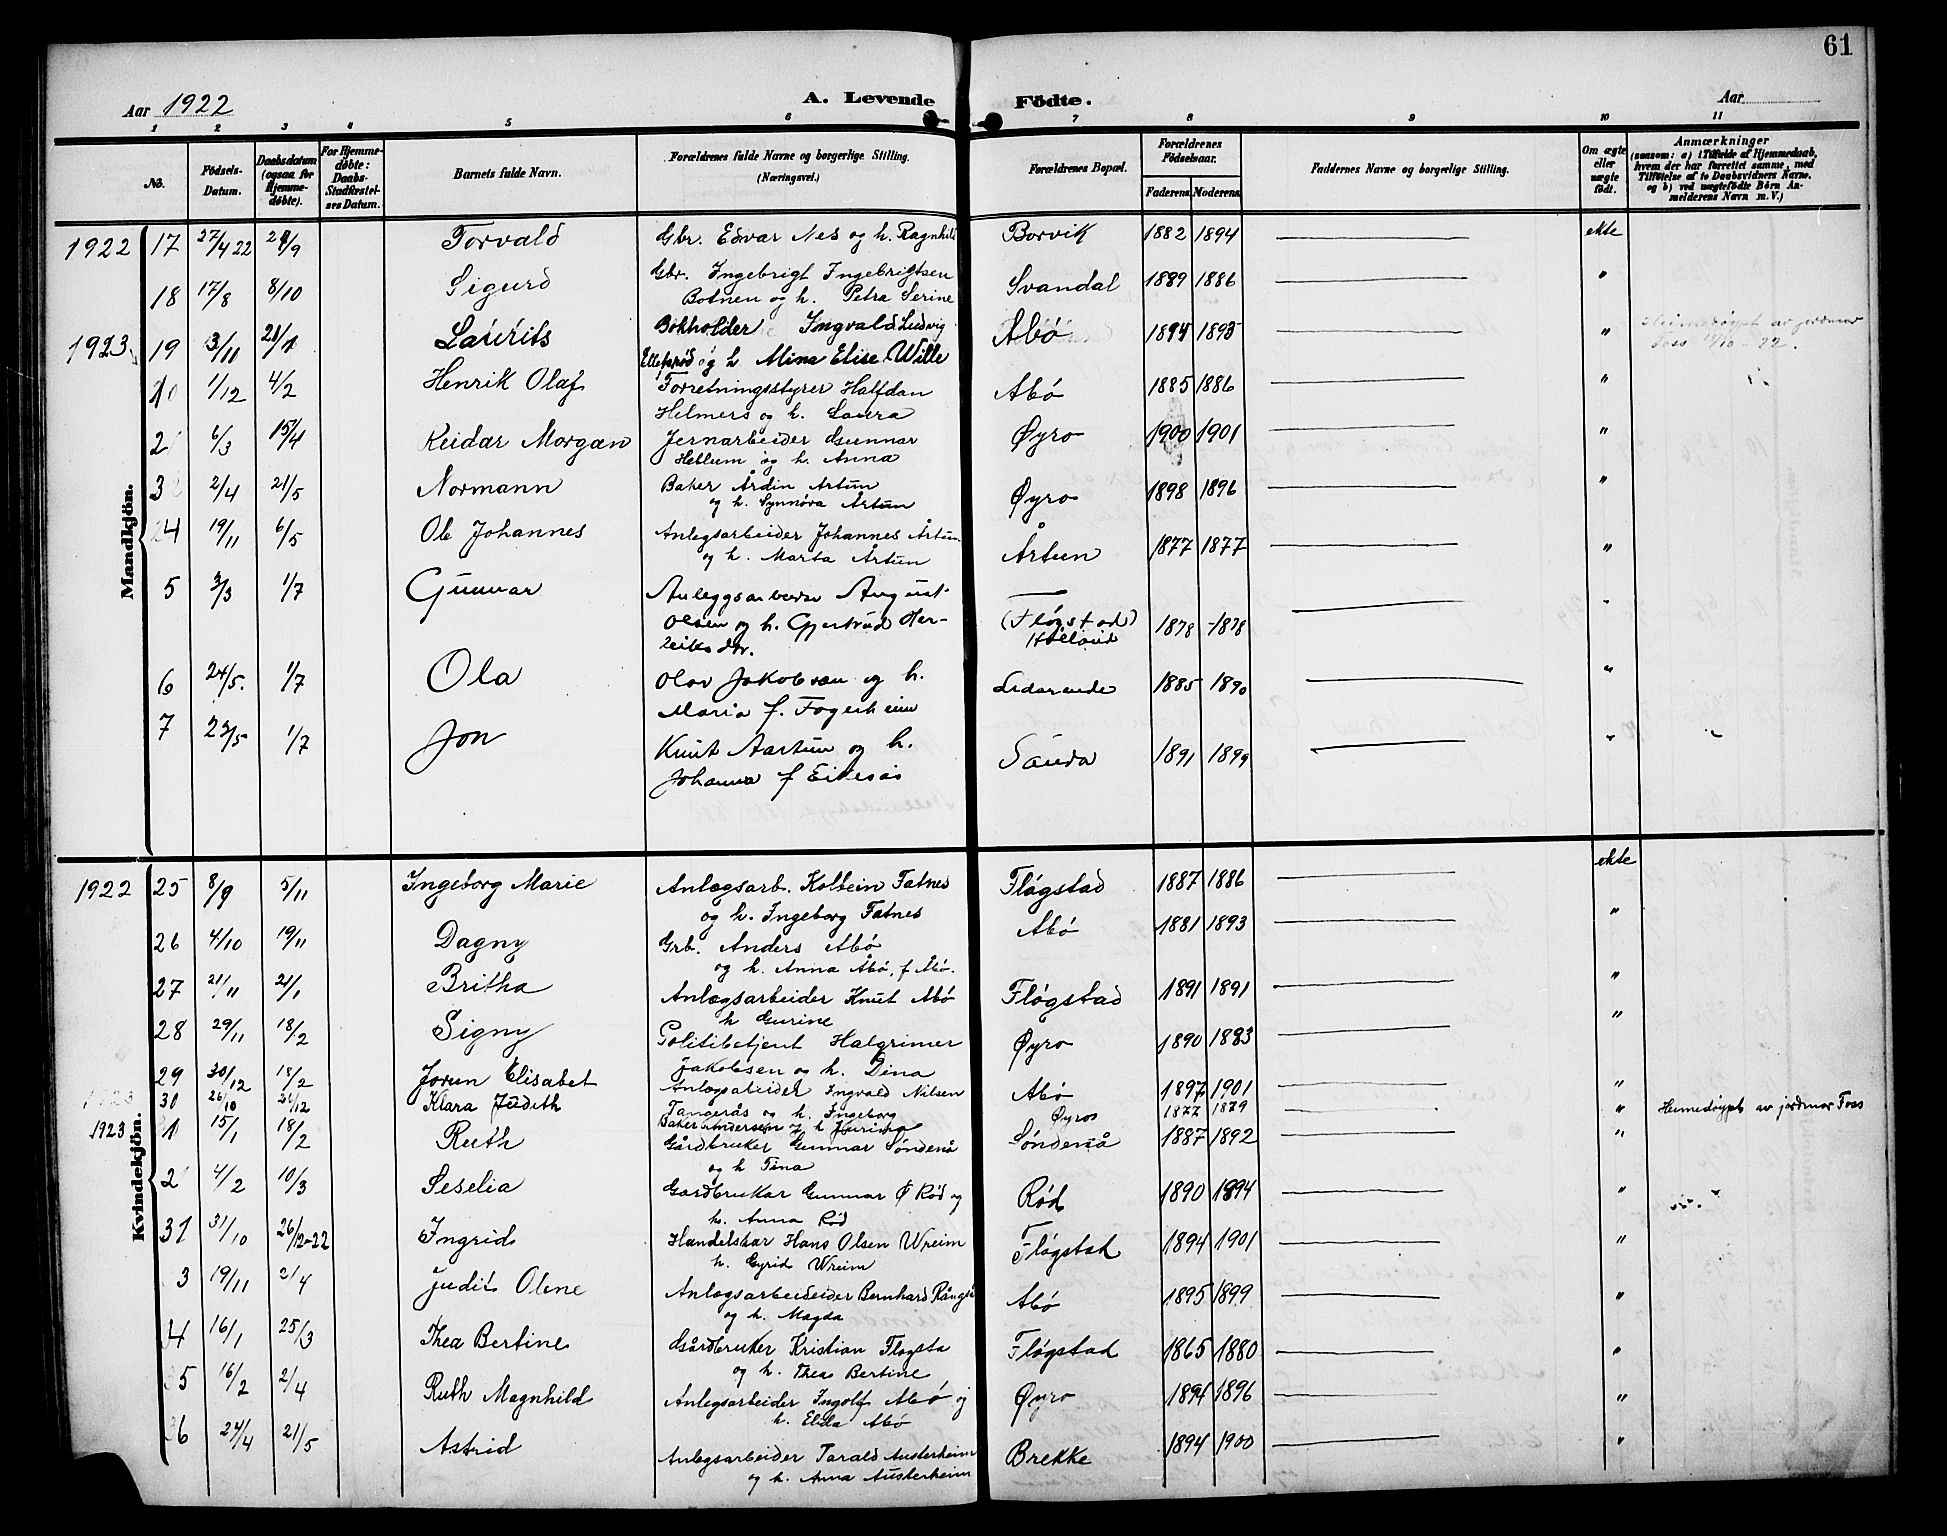 61
Aar 1922
A. Levende Födte.
Aar
1 2 3 4 5 6 7 8 9 10 11
No.
Födsels-Datum.
Daabsdatum (ogsaa for Hjemmedøbte).
For Hjemmedøbte: Daabs-Stadfæstelses Datum.
Barnets fulde Navn.
Forældrenes fulde Navne og borgerlige Stilling. (Næringsvei.)
Forældrenes Bopæl.
Forældrenes Fødselsaar. Faderens. Moderens.
Faddernes Navne og borgerlige Stilling.
Om ægte eller uægte født.
Anmærkninger (saasom: a) i Tilfælde af Hjemmedaab, hvem der har forrettet samme, med Tilføielse af to Daabsvidners Navne, og b) ved uægtefödte Börn Anmelderens Navn m. V.)
Mandkjön.
1922 17 27/4 22 Torvald Gbr. Edvar Nes og h. Ragnhild Borvik 1882 1894 ekte
18 17/8 8/10 Sigurd Gbr. Ingebrigt Ingebrigtsen Svandal 1889 1886 "
Botnen og h. Petra Serine
1923 19 3/11 21/1 Laurits Bokholder Ingvald Ludvig Åbø 1894 1893 "
og h Mina Elise Wille
1/12 4/2 Henrik Olaf Forretningsstyrer Halfdan Åbø 1885 1886 "
Helmers og h. Laura
2 6/3 15/4 Reidar Morgan Jernarbeider Gunnar Øyro 1900 1901 "
Hebllum og h. Anna
3 2/4 21/5 Normann Baker Årdin Artun Øyro 1898 1896 "
og h. Synnøva Årtun
4 19/11 6/5 Ole Johannes Anlegsarbeider Johannes Årtun Årtun 1877 1877 "
og h. Marta Årtun
5 3/3 1/7 Gunnar August
Olsen og h. Gjertrud Her- (Fløgstad) 1878 1878 "
leiksdtr.
6 24/5. 1/7 Ola Olav Jakobsen og h. 1885 1890 "
Maria f. Fagerheim
7 23/5 1/7 Jon Knut Aartun og h. Sauda 1891 1899 "
Johanna f Eikesås
Kvindekjön.
1922 25 8/9 5/11 Ingeborg Marie Anlægsarb. Kolbein Fatnes Fløgstad 1887 1886 ekte
og h. Ingeborg Fatnes
26 4/10 19/11 Dagny Grb. Anders Abø Abø 1881 1893 "
og h. Anna Åbø, f Åbø.
27 21/11 21/1 Britha Anlægsarbeider Knut Abø Fløgstad 1891 1891 "
h Gurine
28 29/11 18/2 Signy Politibetjent Halgrimer Øyro 1890 1883 "
Jakobsen og h. Dina
29 30/12 18/2 Jorun Elisabet Anlægsabeider Ingvald Nilsen Abø 1897 1901 "
Tangerås og h. Ingeborg
30 26/10 Klara Judith Baker Andersen og h Jurina Øyro 1877 1879 " Heimedøypt av jordmor Foss
1923 1 15/1 18/2 Ruth Gårdbruker Gunnar Søndenå Søndenå 1887 1892 "
og h Tina
2 4/2 10/3 Seselia Gardbrukar Gunnar Ø Rød og Rød 1890 1894 "
h. Anna Rød
31 31/10 26/12-22 Ingrid Handelskar Hans Olsen Wreim Fløgstad 1894 1901 "
h. Gyrid Wreim
3 19/11 2/4 Judit Olene Anlægsarbeideider Bernhard Abø 1895 1899 "
og h. Magda
4 16/1 25/3 Thea Bertine Gårdbruker Kristian Flogsta Fløgstad 1865 1880 "
og h. Thea Bertine
5 16/2 2/4 Ruth Magnhild Anlegsarbeider Ingolf Abø og Øyro 1894 1896 "
h. Elida Abø
6 24/4 21/5 Astrid Anlegsarbeider Tarald Austerheim Brekke 1894 1900 "
og h. Anna Austerheim